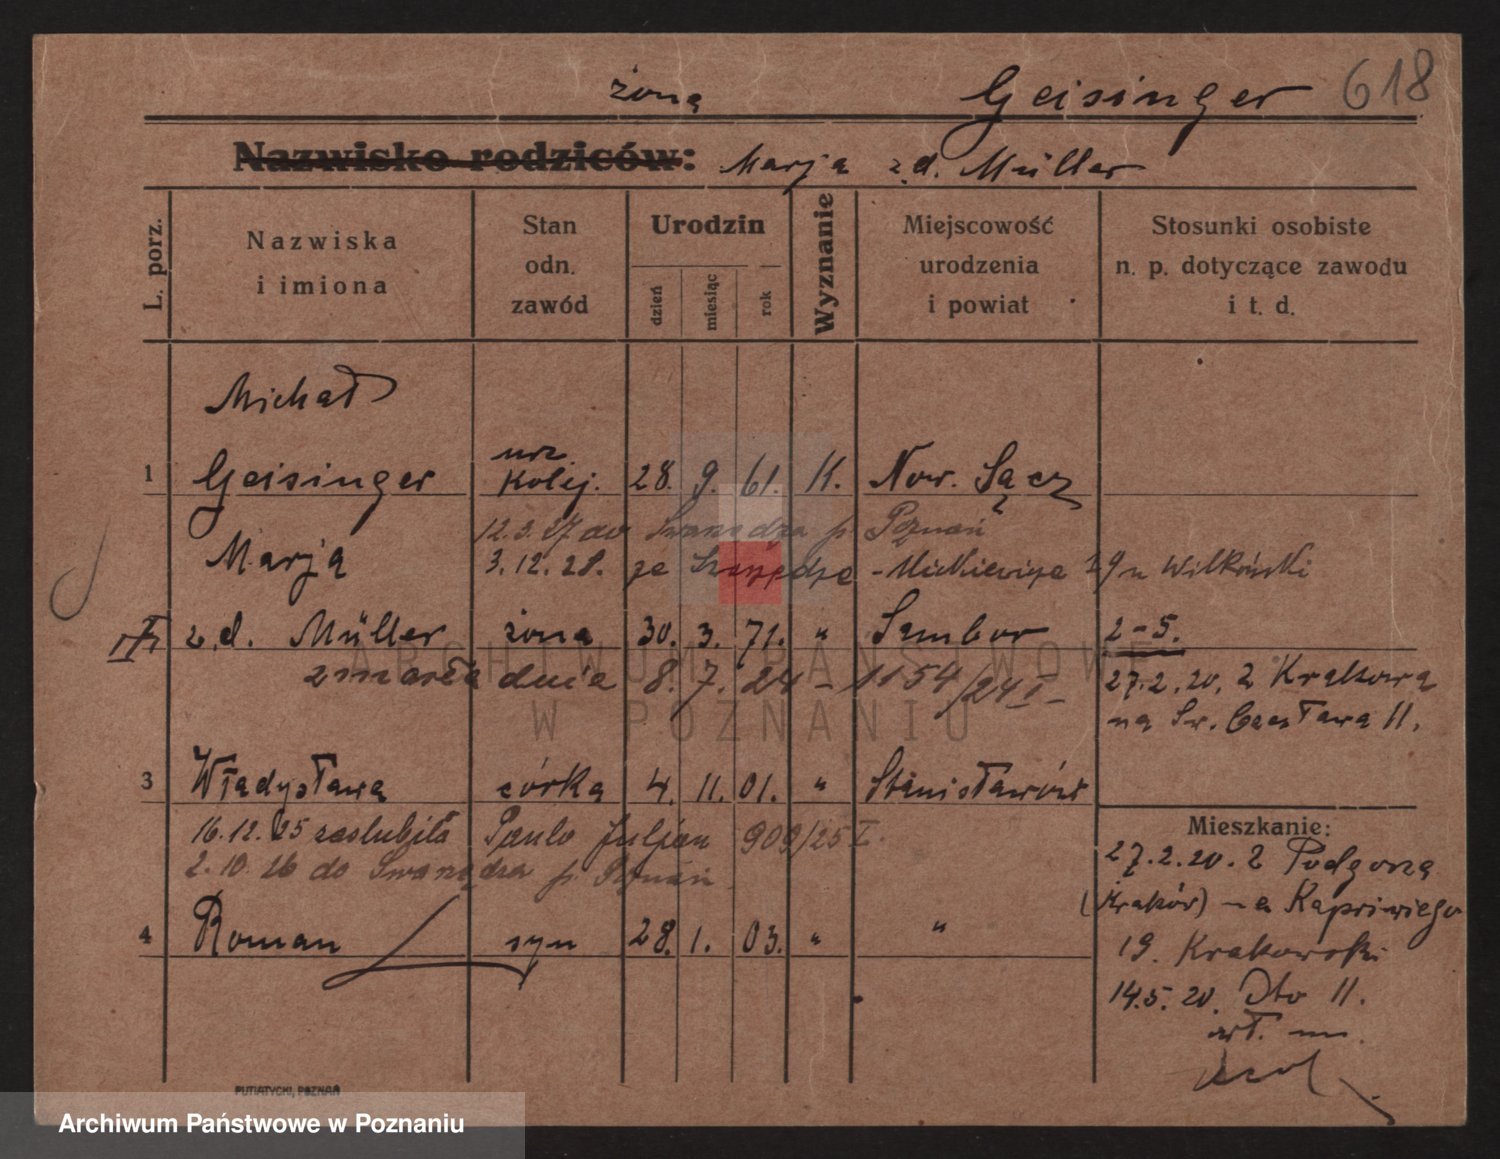 żona Geisinger 618
Nazwisko rodziców: Marja z d. Müller
L. porz.
Nazwiska i imiona
Stan odn. zawód
Urodzin
dzień miesiąc rok
Wyznanie
Miejscowość urodzenia i powiat
Stosunki osobiste n. p. dotyczące zawodu i t. d.
Michał
1 Geisinger urz. Kolej. 28. 9. 61. K. Now. Sącz
12.3.27 do Swarzędza p. Poznań
Marja 3.12.28. ze Swarzędza - Mickiewicza 29 u Wilkoński
z d. Müller żona 30. 3. 71. " Sambor 2-5.
zmarła dnia 8. 7. 24 - 1154/24 I - 27.2.20. z Krakowa
na Św. Czesława 11.
3 Władysława córka 4. 11. 01. " Stanisławów
Mieszkanie:
16.12.25 zaślubiła Paulo Juljan 909/25 I.
27.2.20. z Podgorza
2.10.26 do Swarzędza p. Poznań
(Kraków) - 19. Krakowski
4 Roman syn 28. 1. 03. " "
14.5.20. Dto 11.
wł. m.
PUTIATYCKI, POZNAŃ
ARCHIWUM PAŃSTWOWE
W POZNANIU
Archiwum Państwowe w Poznaniu